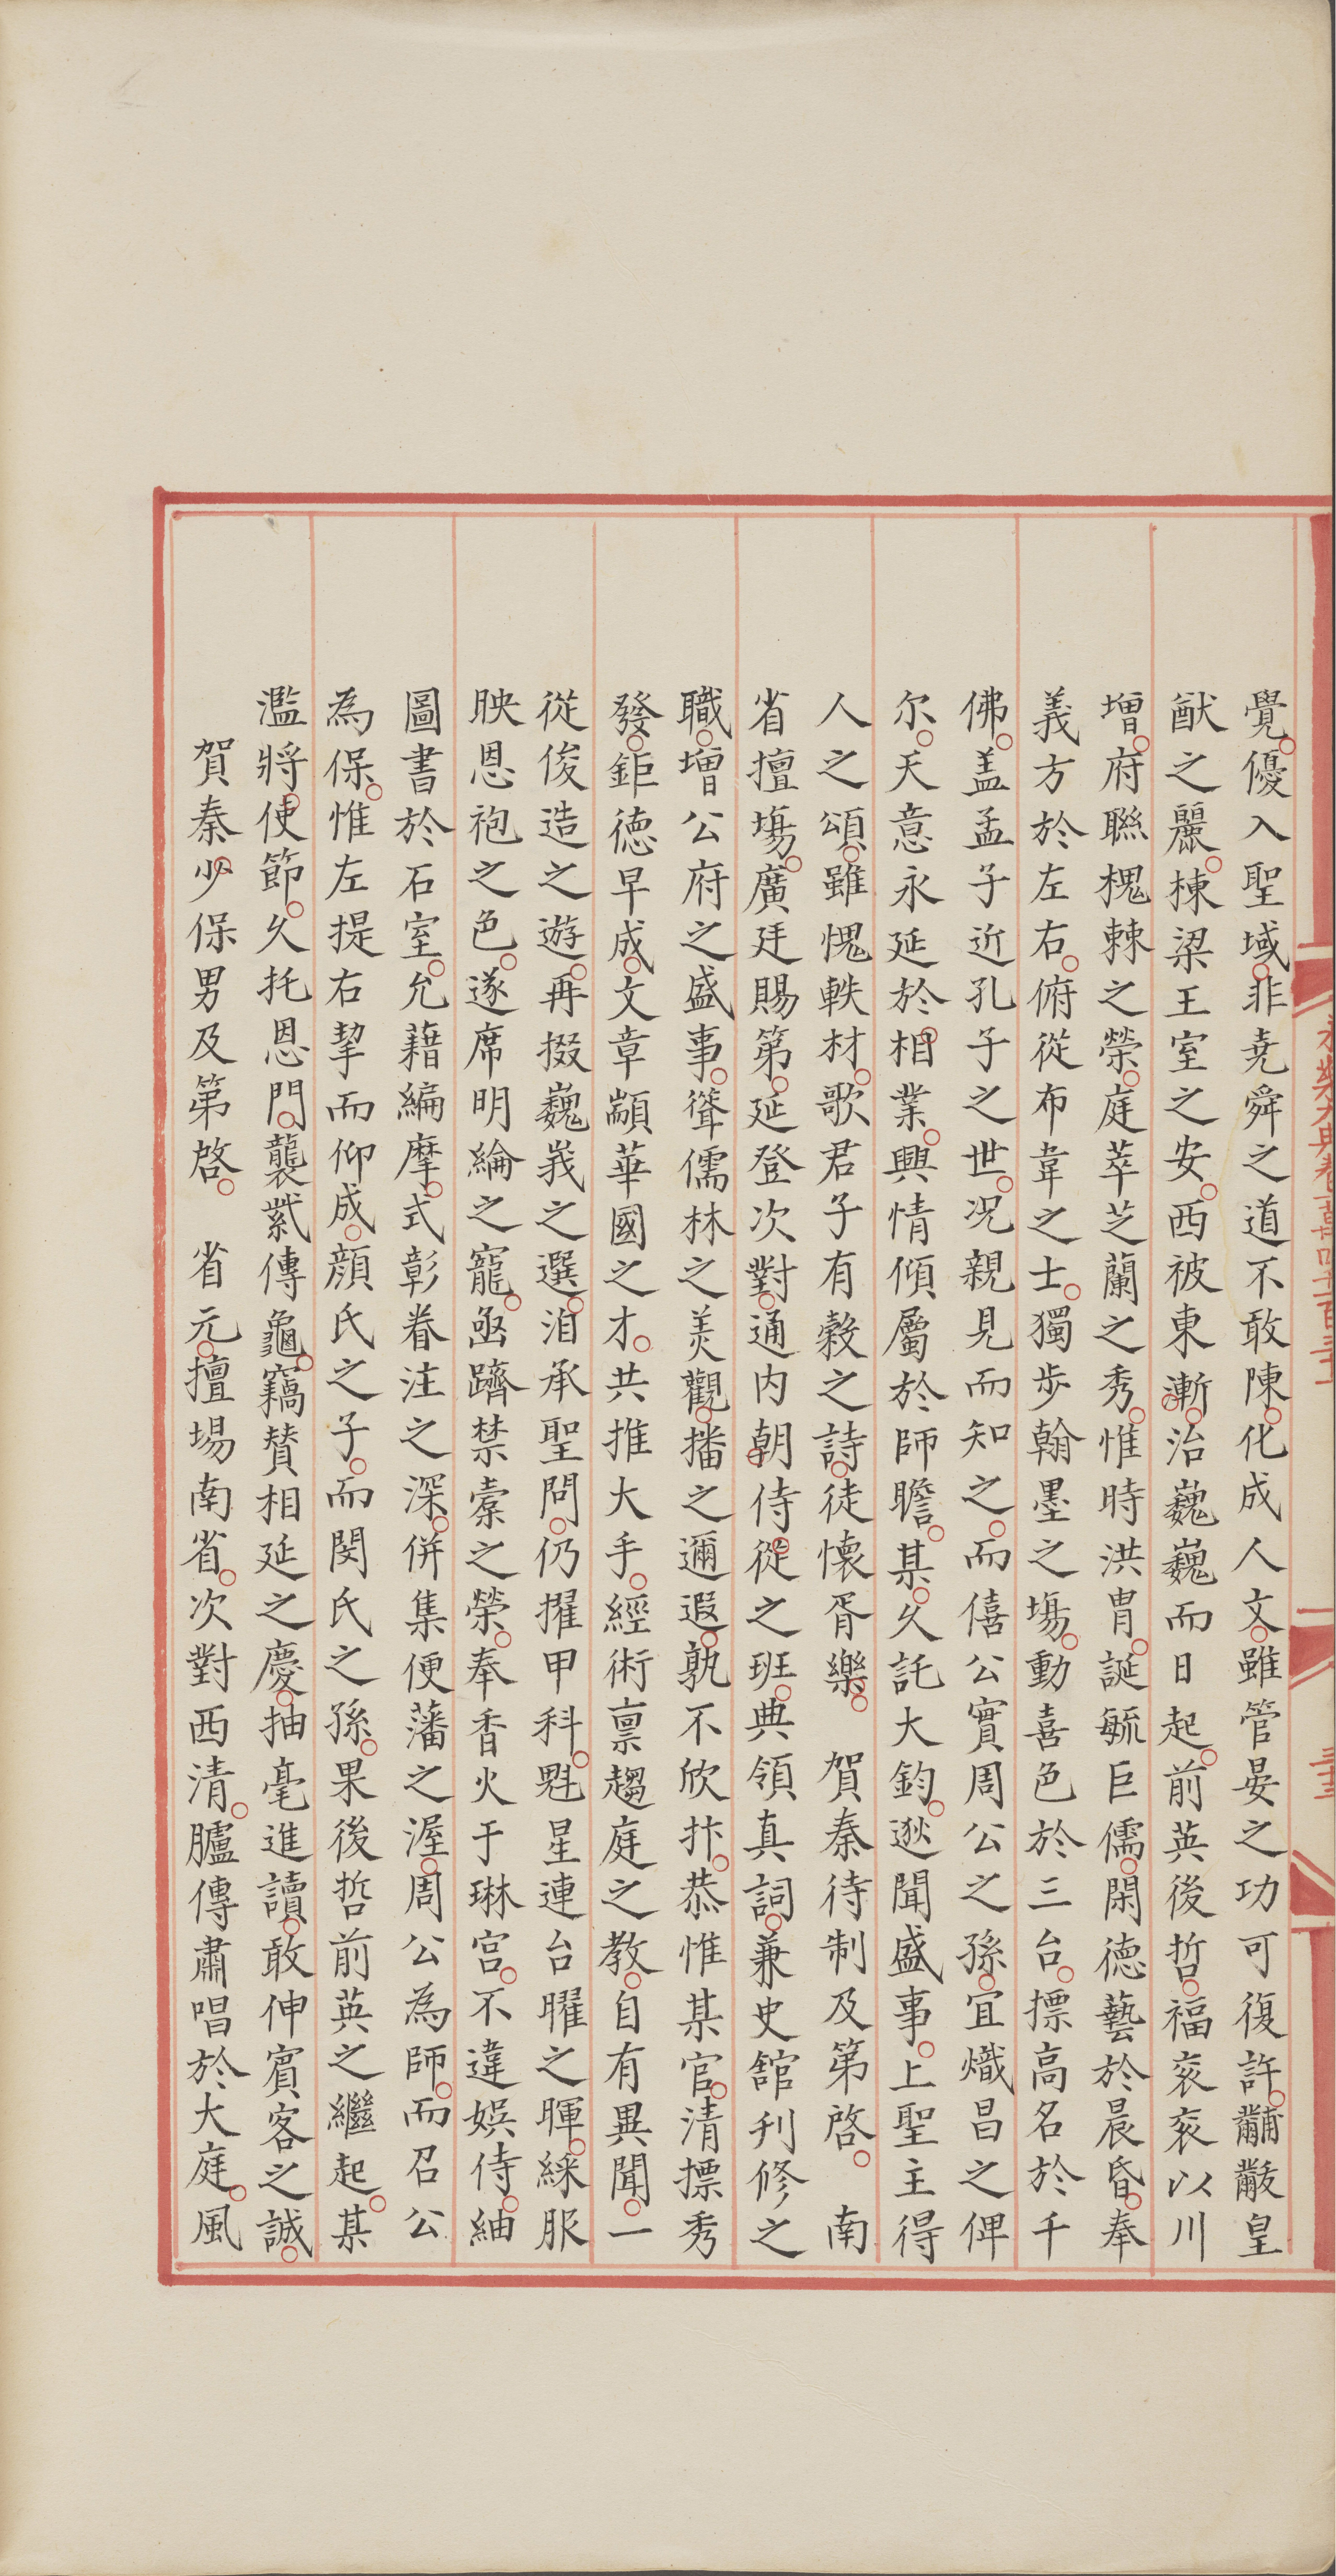 覺優入聖域非堯舜之道不敢陳化成人文雖管晏之功可復許黼黻皇
猷之麗棟梁王室之安西被東漸治巍巍而日起前英後哲福衮衮以川
增府聮槐棘之榮庭萃芝蘭之秀惟時洪胄誕毓巨儒閑德藝於晨昏奉
義方於左右俯從布韋之士獨步翰墨之塲動喜色於三台摽高名於千
佛盖孟子近孔子之世况親見而知之而僖公實周公之孫宜熾昌之俾
尔天意永延於相業興情傾屬於師瞻某久託大鈞逖聞盛事上聖主得
人之頌雖愧軼材歌君子有糓之詩徒懷胥樂　賀秦待制及第啓　南
省擅塲廣廷賜第延登次對通内朝侍從之班典領真詞兼史舘刋修之
職增公府之盛事聳儒林之羙觀播之邇遐孰不欣抃恭惟某官清摽秀
發鉅德早成文章顓華國之才共推大手經術禀趨庭之教自有異聞一
從俊造之遊再掇巍羛之選洎承聖問仍擢甲科魁星連台曜之暉綵服
映恩袍之色遂席明綸之寵亟躋禁橐之榮奉香火于琳宫不違娛侍紬
圖書於石室允藉編摩式彰眷注之深併集便蕃之渥周公為師而召公
為保惟左提右挈而仰成顔氏之子而閔氏之孫果後哲前英之繼起某
濫將使節久托恩門襲紫傳龜竊賛相延之慶抽毫進讀敢伸賓客之誠
賀秦少保男及第啓　省元擅場南省次對西清臚傳肅唱於大庭風
永樂大典卷